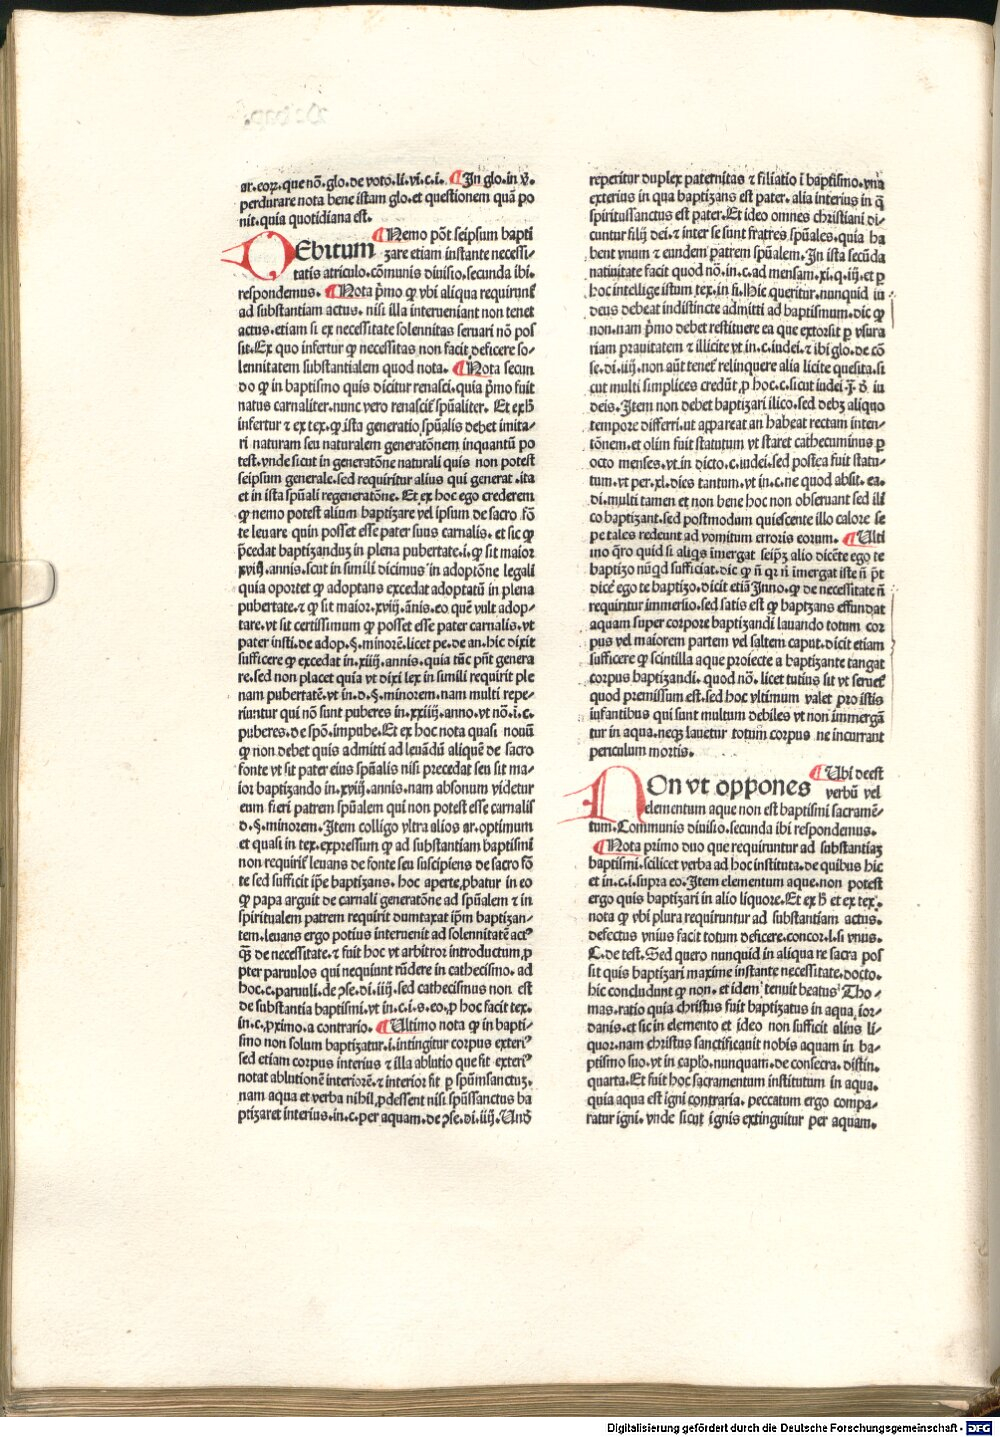 ar.eoꝝ.que nō.glo.de voto.li.vi.c.i. ¶In glo.in v̄.
perdurare nota bene istam glo.et questionem quā po
nit.quia quotidiana est.
DEbitum ¶Nemo pōt seipsum bapti
zare etiam instante necessi⸗
tatis articulo.cōmunis diuisio.secunda ibi.
respondemus. ¶Nota pͥmo ꝙ vbi aliqua requirunť
ad substantiam actus. nisi illa interueniant non tenet
actus.etiam si ex necessitate solennitas seruari nō pos
sit.Ex quo infertur ꝙ necessitas non facit deficere so⸗
lennitatem substantialem quod nota. ¶Nota secun
do ꝙ in baptismo quis dicitur renasci.quia pͥmo fuit
natus carnaliter.nunc vero renasciť spūaliter. Et ex ħ
infertur ⁊ ex tex.ꝙ ista generatio spūalis debet imita⸗
ri naturam seu naturalem generatōnem inquantū po
test.vnde sicut in generatōne naturali quis non potest
seipsum generale.sed requiritur alius qui generat.ita
et in ista spūali regeneratōne. Et ex hoc ego crederem
ꝙ nemo potest alium baptizare vel ipsum de sacro fō
te leuare quin posset esse pater suus carnalis.et sic ꝙ
p̄cedat baptizanduȝ in plena pubertate.i.ꝙ sit maior
xviij.annis.sicut in simili dicimus in adoptōne legali
quia oportet ꝙ adoptans excedat adoptatū in plena
pubertate.⁊ ꝙ sit maior.xviij.ānis.eo quē vult adop⸗
tare.vt sit certissimum ꝙ posset esse pater carnalis.vt
pater insti.de adop.§.minorē.licet pe.de an.hic dixit
sufficere ꝙ excedat in.xiiij.annis.quia tūc pn̄t genera
re.sed non placet quia vt dixi lex in simili requirit ple
nam pubertatē.vt in.d.§.minorem.nam multi repe⸗
riuntur qui nō sunt puberes in.xxiiij.anno.vt nō.ī.c.
puberes.de spō.impube.Et ex hoc nota quasi nouū
ꝙ non debet quis admitti ad leuādū aliquē de sacro
fonte vt sit pater eius spūalis nisi precedat seu sit ma⸗
ior baptizando in.xviij.annis.nam absonum videtur
eum fieri patrem spūalem qui non potest esse carnalis
d.§.minorem.Item colligo vltra alios ar.optimum
et quasi in tex.expressum ꝙ ad substantiam baptismi
non requiriť leuans de fonte seu suscipiens de sacro fō
te sed sufficit ip̄e baptizans. hoc aperte ꝓbatur in eo
ꝙ papa arguit de carnali generatōne ad spūalem ⁊ in
spiritualem patrem requirit dumtaxat ip̄m baptizan⸗
tem.leuans ergo potius interuenit ad solennitatē actꝰ
qȝ̄ de necessitate.⁊ fuit hoc vt arbitror introductum ꝓ
pter paruulos qui nequiunt rn̄dere in cathecismo. ad
hoc.c.paruuli.de ↄse.di.iiij.sed cathecismus non est
de substantia baptismi.vt in.c.i.s.eo.ꝓ hoc facit tex.
in.c.ꝓximo.a contrario. ¶Ultimo nota ꝙ in bapti⸗
smo non solum baptizatur.i.intingitur corpus exteriꝰ
sed etiam corpus interius ⁊ illa ablutio que fit exteriꝰ
notat ablutionē interiorē.⁊ interior fit ꝑ spūmsanctuȝ.
nam aqua et verba nihil ꝓdessent nisi spūssanctus ba
ptizaret interius.in.c.per aquam.de ↄse.di.iiij.Unð
reperitur duplex paternitas ⁊ filiatio ī baptismo.vna
exterius in qua baptizans est pater. alia interius in q̄
spiritussanctus est pater.Et ideo omnes christiani di⸗
cuntur filij dei.⁊ inter se sunt fratres spūales.quia ha
bent vnum ⁊ eundem patrem spūalem.In ista secūda
natiuitate facit quod nō.in.c.ad mensam.xi.q.iij.et ꝑ
hoc intellige istum tex.in fi.Hic queritur.nunquid iu
deus debeat indistincte admitti ad baptismum.dic ꝙ
non.nam pͥmo debet restituere ea que extorsit ꝑ vsura
riam prauitatem ⁊ illicite vt in.c.iudei.⁊ ibi glo.de cō
se.di.iiij.non aūt teneť relinquere alia licite quesita.si
cut multi simplices credūt ꝑ hoc.c.sicut iudei .ī. ð iu
deis.Item non debet baptizari ilico.sed debȝ aliquo
tempore differri.ut appareat an habeat rectam inten⸗
tōnem.et olim fuit statutum vt staret cathecuminus ꝑ
octo menses.vt in dicto.c.iudei.sed postea fuit statu⸗
tum.vt per.xl.dies tantum.vt in.c.ne quod absit.ea.
di.multi tamen et non bene hoc non obseruant sed ili
co baptizant.sed postmodum quiescente illo calore se
pe tales redeunt ad vomitum erroris eorum. ¶Ulti
mo q̄ro quid si aliqs īmergat seipȝ alio dicēte ego te
baptizo nūqd sufficiat.dic ꝙ n̄ qꝛ n̄ īmergat iste n̄ p̄t
diceť ego te baptizo.dicit etiā Inno.ꝙ de necessitate n̄
requiritur immersio.sed satis est ꝙ baptzans effundat
aquam super corpore baptizandi lauando totum cor
pus vel maiorem partem vel saltem caput.dicit etiam
sufficere ꝙ scintilla aque proiecte a baptizante tangat
corpus baptizandi. quod nō. licet tutius sit vt serueť
quod premissum est.sed hoc vltimum valet pro istis
infantibus qui sunt multum debiles vt non immergā
tur in aqua.neqȝ lauetur totum corpus ne incurrant
periculum mortis.
NOn vt oppones ¶Ubi deest
verbū vel
elementum aque non est baptismi sacramē⸗
tum.Communis diuisio.secunda ibi respondemus.
¶Nota primo duo que requiruntur ad substantiaȝ
baptismi.scilicet verba ad hoc instituta.de quibus hic
et in.c.i.supra eo.Item elementum aque.non potest
ergo quis baptizari in alio liquore.Et ex ħ et ex tex.
nota ꝙ vbi plura requiruntur ad substantiam actus.
defectus vnius facit totum deficere.concor.l.si vnus.
C.de test.Sed quero nunquid in aliqua re sacra pos
sit quis baptizari maxime instante necessitate.docto.
hic concludunt ꝙ non.et idem tenuit beatus Tho⸗
mas.ratio quia christus fuit baptizatus in aqua ior⸗
danis.et sic in elemento et ideo non sufficit alius li⸗
quor.nam christus sanctificauit nobis aquam in ba⸗
ptismo suo.vt in caplo.nunquam.de consecra.distin.
quarta.Et fuit hoc sacramentum institutum in aqua.
quia aqua est igni contraria. peccatum ergo compa⸗
ratur igni.vnde sicut ignis extinguitur per aquam.
Digitalisierung gefördert durch die Deutsche Forschungsgemeinschaft - DFG